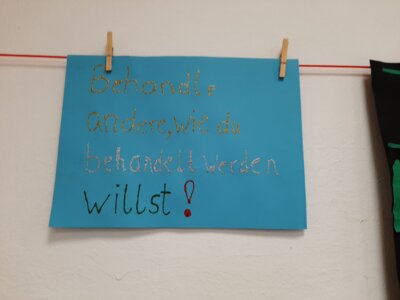 Behandle
andere, wie du
behandelt werden
willst!